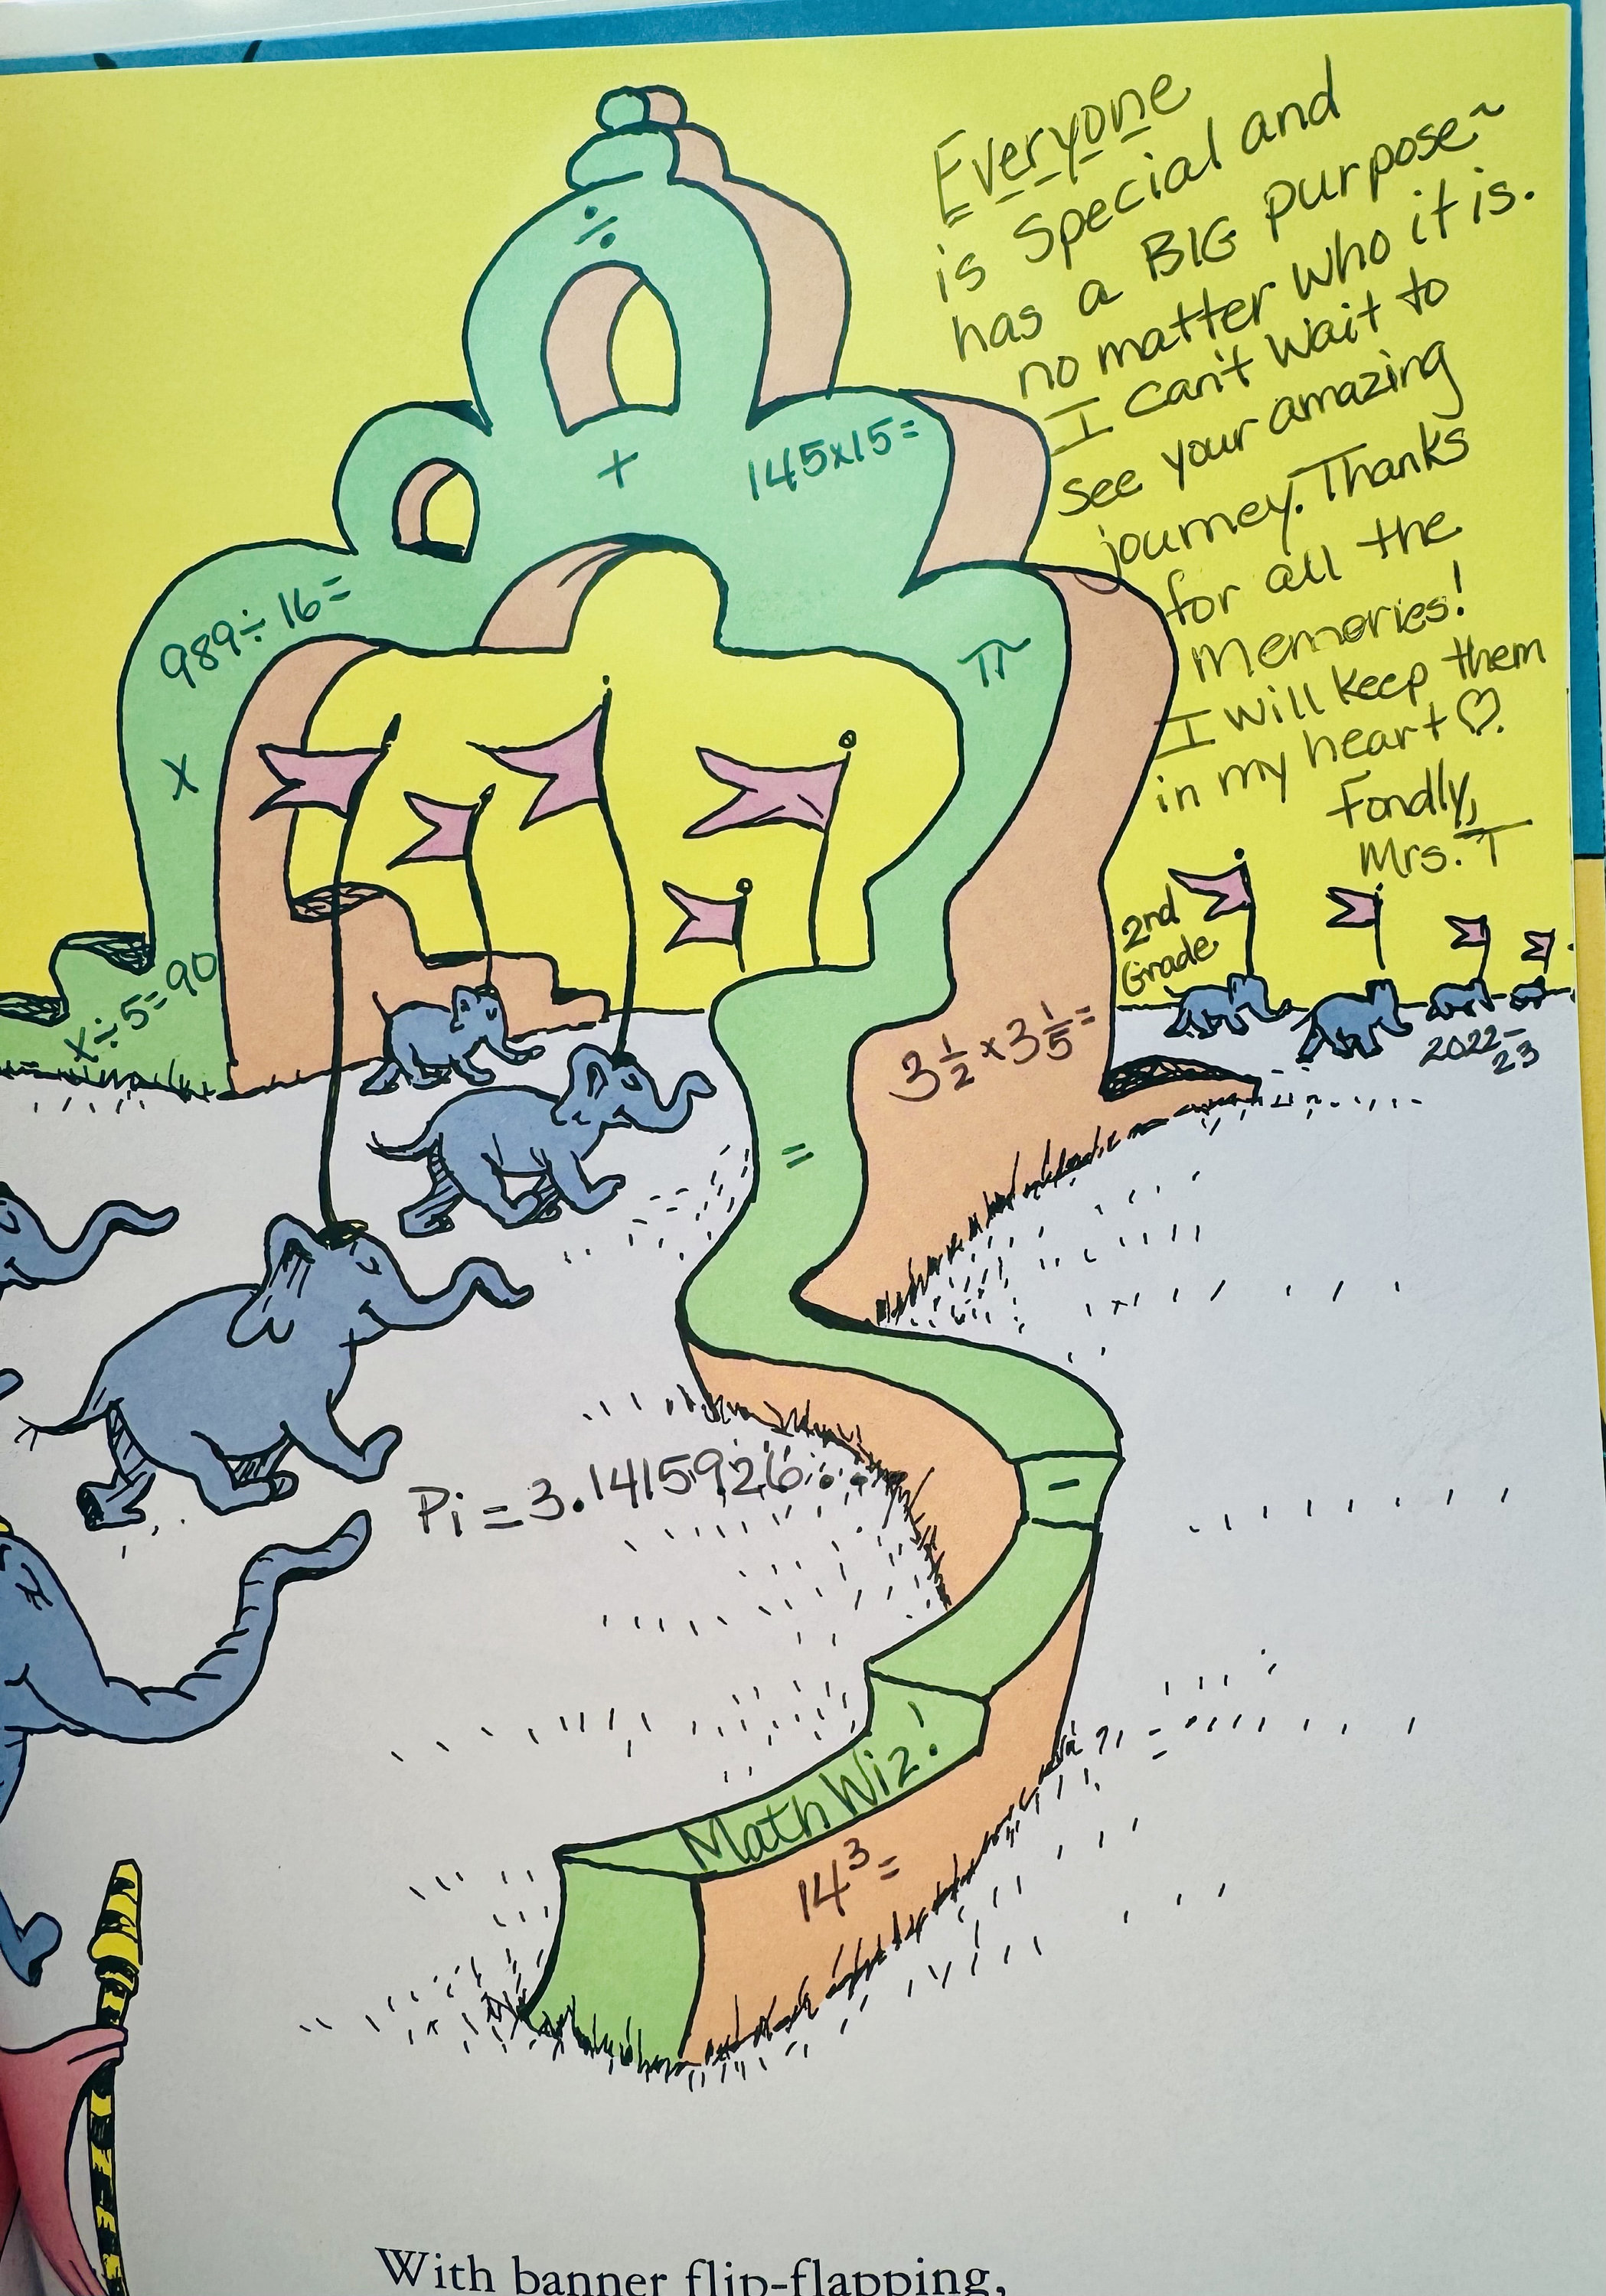 Everyone
is Special and
has a BIG purpose~
no matter who it is.
I can't wait to
see your amazing
journey. Thanks
for all the
Memories!
I will keep them
in my heart ♡.
Fondly,
Mrs. T
2nd
Grade
2022-
23
÷
+
145x15=
989÷16=
π
x
x÷5=90
3 1/2 x 3 1/5 =
=
Pi = 3.1415926...
-
Math Wiz!
14³=
With banner flip-flapping,